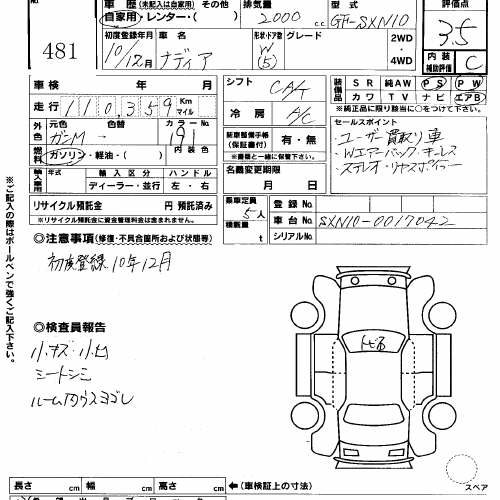 車歴 (未記入は自家用) その他
自家用・レンター・( )
排気量 2000 c.c.
型式 GF-SXN10
評価点 3.5
481
初度登録年月 10/12月
車名 ナディア
形状・ドア数 W (5)
グレード
2WD
・4WD
内装補助評価 C
車検 年 月
シフト CA/T
装備品 SR 純AW PS PW
カワ TV ナビ エアB
*純正品に限り該当に○をつけて下さい。
走行 110,359 Km マイル
冷房 A/C
外色 元色 色替 カラーNo.
ガンM→ 191
セールスポイント
・ユーザー買取り車
・Wエアーバック・キーレス
・ステレオ・リヤスポイラー
燃料 ガソリン・軽油・( ) 内装色
新車整備手帳(保証書付) 有・無
*記入後に保管して下さい。
輸入車用 年式 輸入区分 ハンドル
ディーラー・並行 左・右
名義変更期限
月 日
リサイクル預託金 円 預託済み
*リサイクル預託金に資金管理料金は含まれません。
乗車定員 5人
積載量 t
登録No.
車台No. SXN10-0017042
シリアルNo.
◎注意事項 (修復・不具合箇所および状態等)
初度登録10年12月
※ご記入の際はボールペンで強くご記入下さい。
◎検査員報告
小キズ・小凹
シートシミ
ルーム内ウスヨゴレ
トビ石
長さ cm 幅 cm 高さ cm ←(車検証上の寸法)
スペア